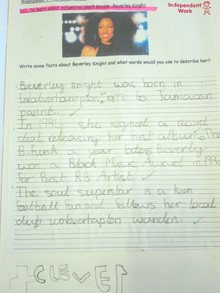 Wednesday
LO: To learn about influential black people: Beverley Knight
Independent
Work
Write some facts about Beverley Knight and what words would you use to describe her?
Beverley Knight was born in
Wolverhampton, 1973 to Jamaican
parents.
In 1994 she signed a record
deal releasing her first album, The
B-Funk a year later Beverley
won a Black Music Award in 1996
for Best RB Artist.
The soul superstar is a keen
football fan and follows her local
club wolverhampton wanders.
CLEVER